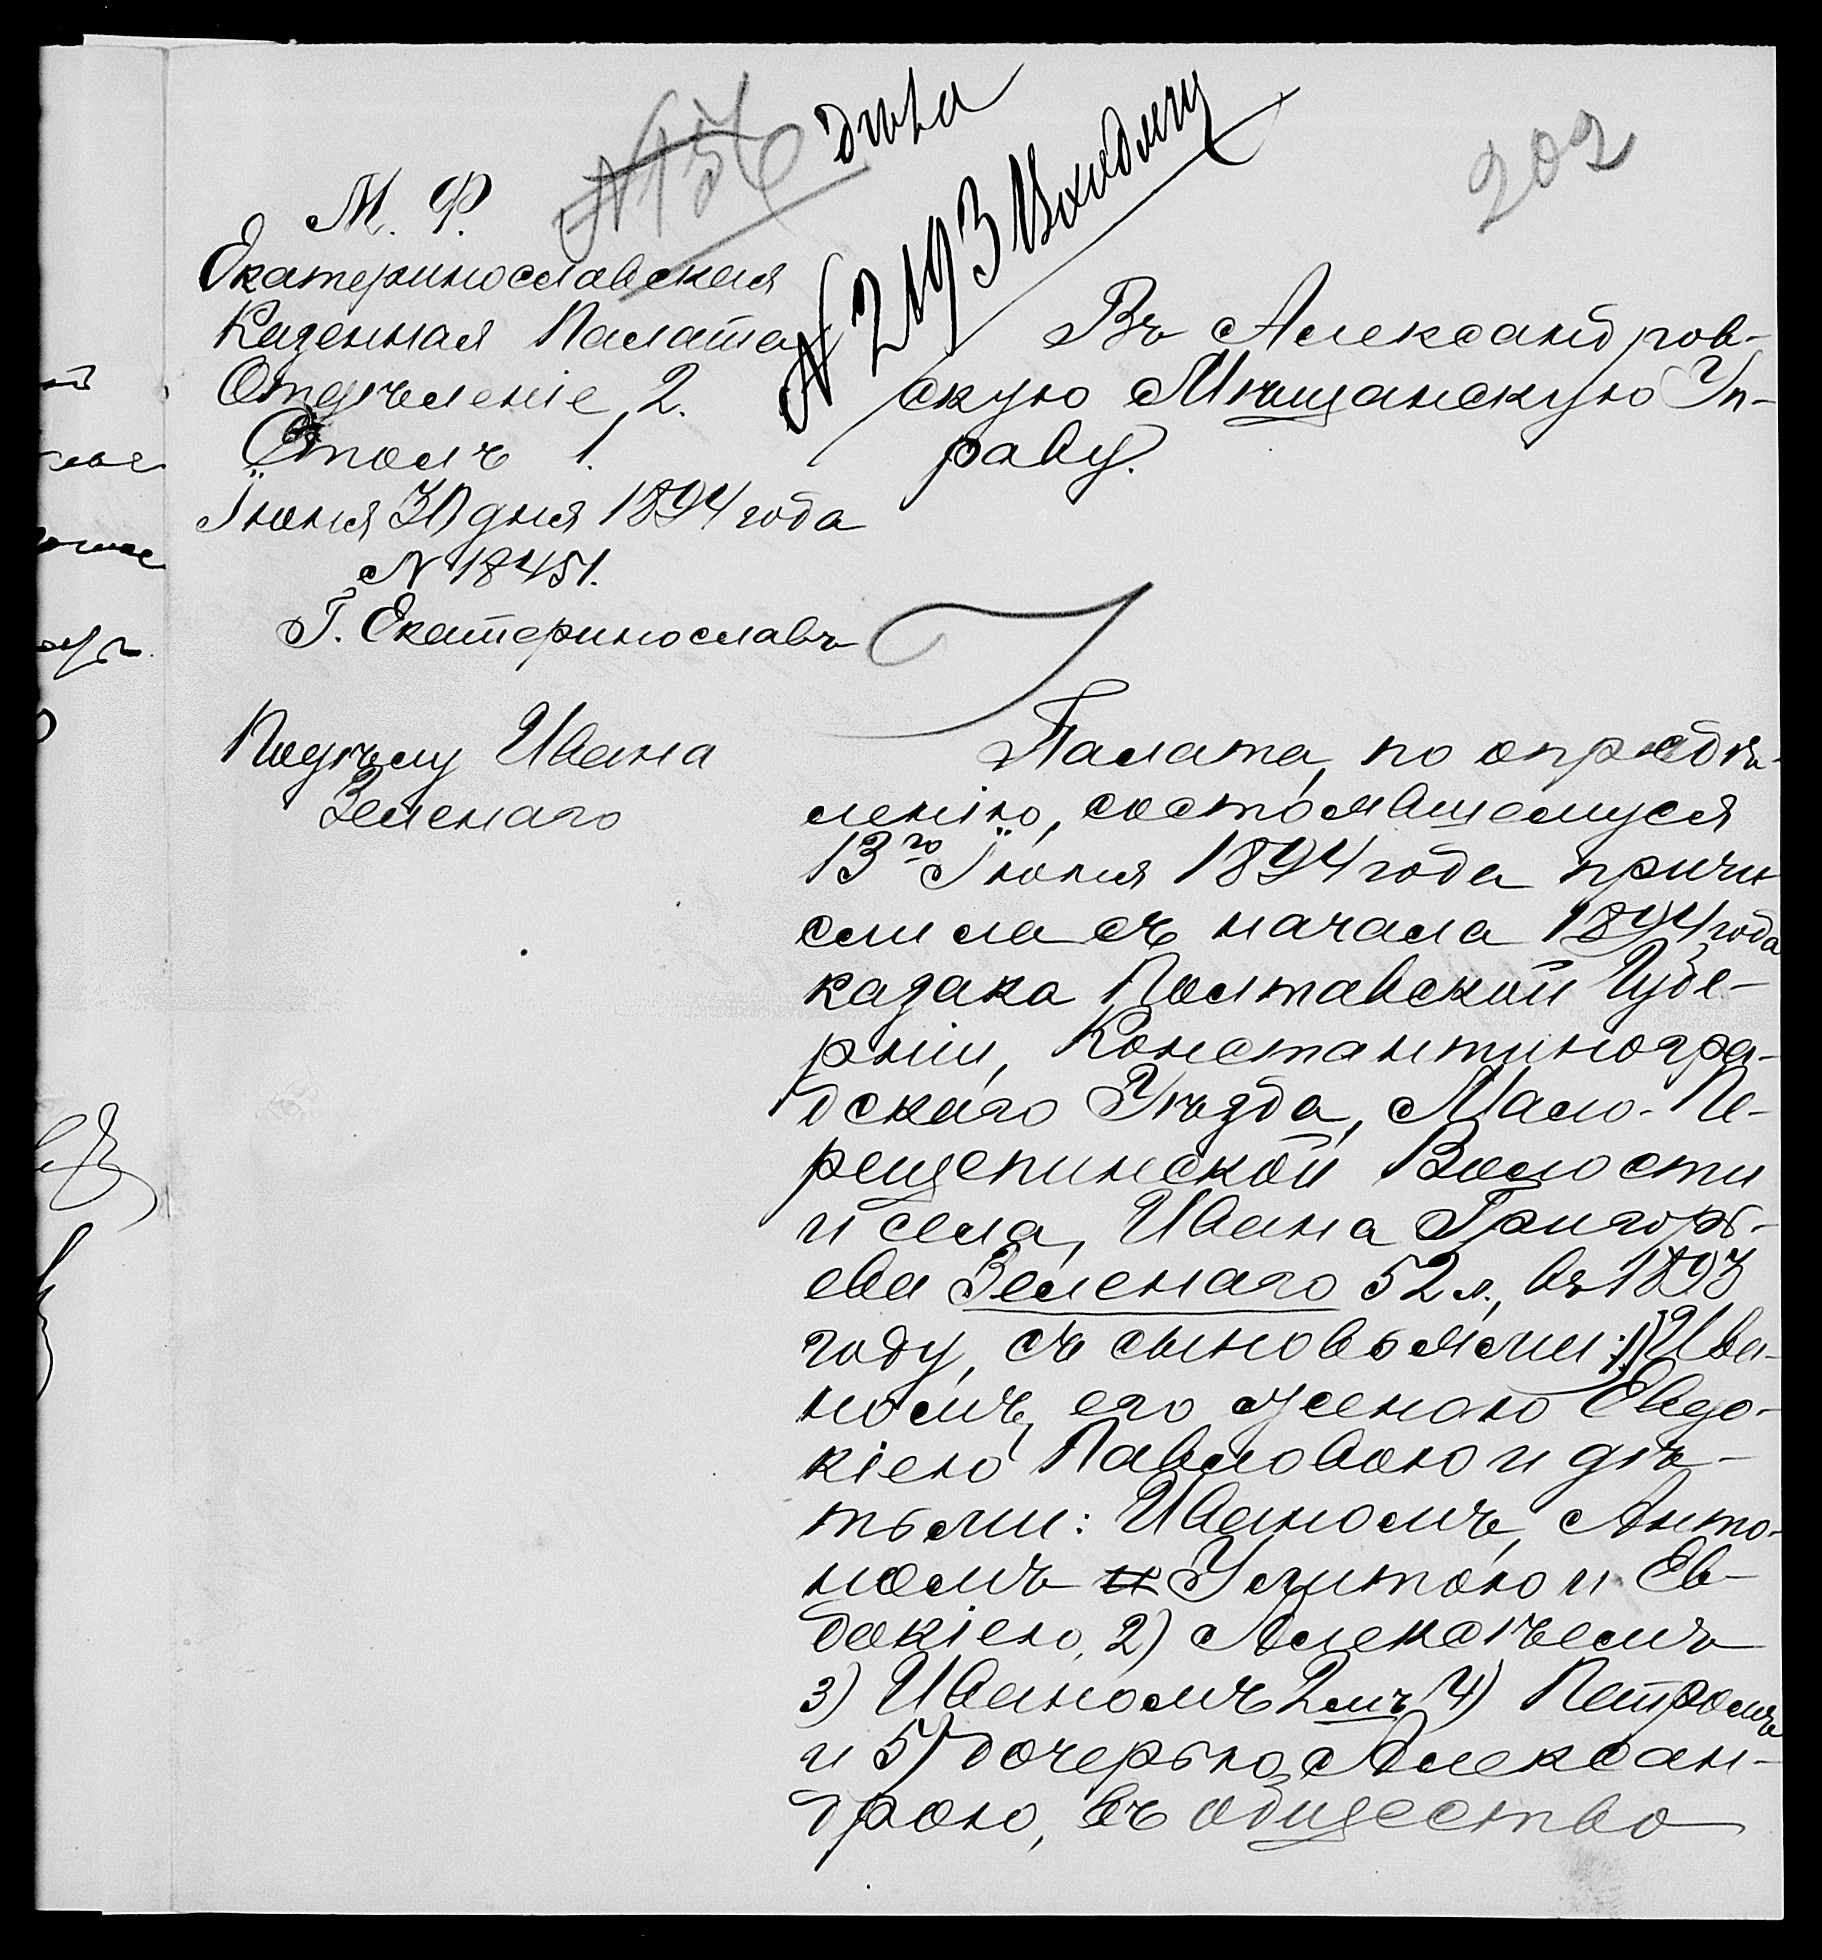 № 56 дѣла
№ 2193 Входящ
202
М. Ф.
Екатеринославская
Казенная Палата
Отдѣленіе 2.
Столъ 1.
Іюня 30 дня 1894 года
№ 18451.
Г. Екатеринославъ
По дѣлу Ивана
Зеленаго
Въ Александров-
скую Мѣщанскую Уп-
раву.
Палата, по опредѣ-
ленію, состоявшемуся
13го Іюня 1894 года причи
слила съ начала 1894 года
казака Полтавской Губе-
рніи, Константиногра-
дскаго Уѣзда, Мало-Пе-
рещепинской Волости
и села, Ивана Григорь-
ева Зеленаго 52 л., въ 1893
году, съ сыновьями: 1) Ива-
номъ, его женою Евдо-
кіею Павловою и дѣ-
тьми: Иваномъ, Анто-
номъ и Улитою и Ев-
докіею, 2) Алексѣемъ
3) Иваномъ 2мъ 4) Петромъ
и 5) дочерью Алексан-
дрою, въ общество